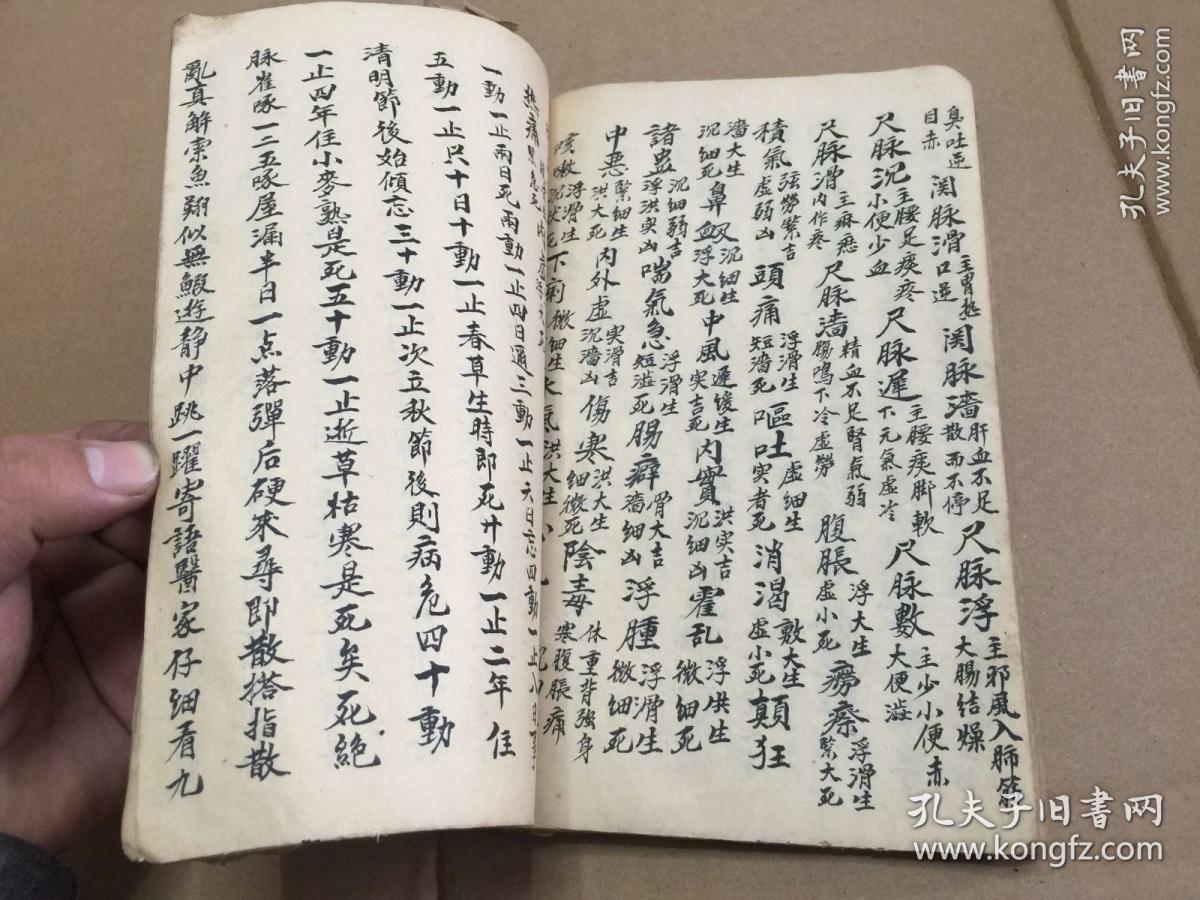 臭吐逆
目赤
関脉滑
主胃热
口逆
関脉濇
肝血不足
散而不停
尺脉浮
主邪風入肺
大腸結燥
尺脉沉
主腰足痰疼
小便少血
尺脉遲
主腰痰脚軟
下元氣虛冷
尺脉數
主少小便赤
大便澁
尺脉滑
主麻
内作疼
尺脉濇
精血不足腎氣弱
腸鳴下冷虛勞
腹脹
浮大生
虛小死
癆瘵
浮滑生
緊大死
積氣
弦勞緊吉
虛弱凶
頭痛
浮滑生
短濇死
嘔吐
虛細生
实者死
消渴
数大生
虛小死
顛狂
濇大生
沉細死
鼻衂
沉細生
浮大死
中風
遲緩生
実吉死
内實
洪实吉
沉細凶
霍乱
浮洪生
微細死
諸蛊
沉細弱吉
浮洪实凶
喘氣急
浮滑生
短澁死
腸癖
滑大吉
濇細凶
浮腫
浮滑生
微細死
中悪
緊細生
洪大死
内外虛
实滑吉
沉濇凶
傷寒
洪大生
細微死
陰毒
体重背强身
寒腹脹痛
咳嗽
浮滑生
下痢
微細生
洪大生
一動一止兩日死兩動一止四日通三動一止六日忘四動一止八日
五動一止只十日十動一止春草生時即死廾動一止二年住
清明節後始傾忘三十動一止次立秋節後則病危四十動
一止四年住小麥熟是死五十動一止逝草枯寒是死矣死絕
脉雀啄一二五啄屋漏半日一点落彈后硬來尋即散搭指散
亂真解索魚翔似無鰕遊静中跳一躍寄語醫家仔細看九
孔夫子旧书网
www.kongfz.com
孔夫子旧书网
www.kongfz.com